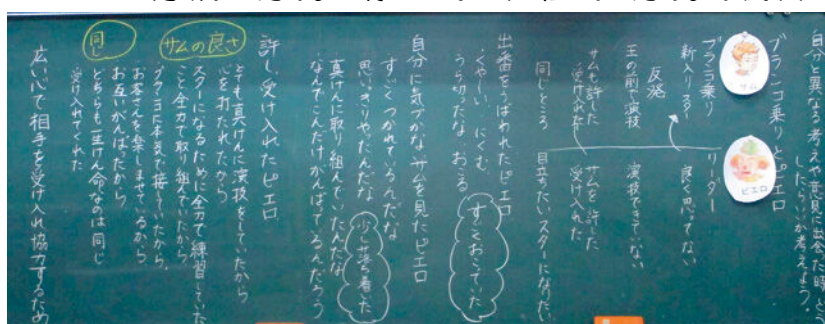 自分と異なる考えや意見に出会った時どう
したらいいか考えよう。
ブランコ乗りとピエロ
サム
ピエロ
ブランコ乗り
リーダー
新入りスター
良く思ってない
反発
王の前で演技
演技できていない
サムも許した
受け入れた
サムを許した
受け入れた
同じところ
目立ちたいスターになりたい
出番をうばわれたピエロ
くやしい、にくむ
うら切ったな、おこる
すごくおこっていた
自分に気づかなサムを見たピエロ
すごくつかれているんだな
思いきりやったんだな
少し落ち着いた
真けんに取り組んでいたんだな
なんでこんなだけがんばっているんだろう
許し、受け入れたピエロ
とても真けんに演技をしていたから
心を打たれたから
サムの良さ
スターになるために全力で練習していた
こと全力で取り組んでいたから
ブランコに本気で接していたから、
お客さんを楽しませているから
同じ
お互いがんばったから
どちらも一生けん命なのは同じ
受け入れてくれた
広い心で相手を受け入れ協力するため